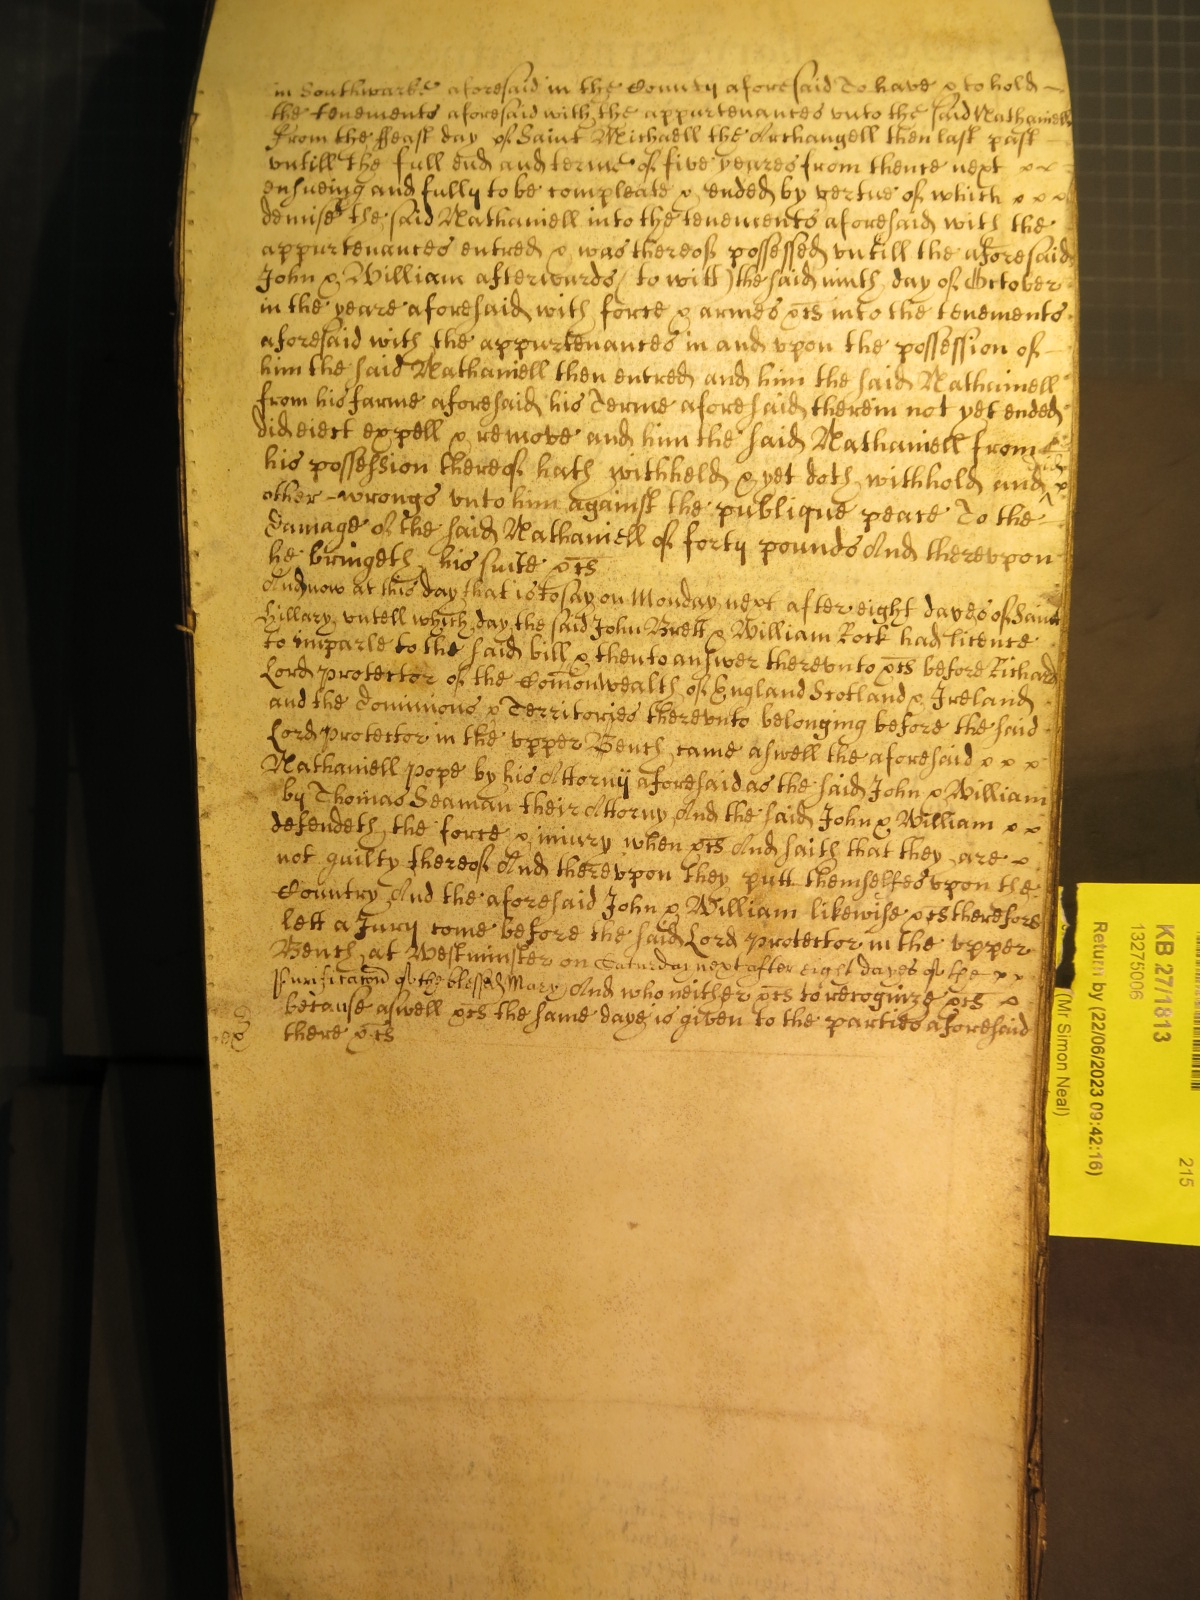 in Southwarke aforesaid in the County aforesaid To have & to hold
the tenements aforesaid with the appurtenances unto the said Nathaniell
from the ffeast day of Saint Michaell the Archangell then last past
vntill the full end and terme of five yeares from thence next x x
ensueing and fully to be compleate & ended by vertue of which x x x
demise the said Nathaniell into the tenements aforesaid with the
appurtenances entred & was thereof possessed vntill the aforesaid
John & William afterwards (to witt) the said ninth day of October
in the yeare aforesaid with force & armes &cs into the tenements
aforesaid with the appurtenances in and vpon the possession of
him the said Nathaniell then entred and him the said Nathaniell
from his farme aforesaid his Terme aforesaid therein not yet ended
did eiect expell & remove and him the said Nathaniell from
his possession thereof hath withheld & yet doth withhold and
other wrongs vnto him against the publique peace To the
damage of the said Nathaniell of forty pounds And therevpon
he bringeth his suite &cs
And now at this day that is to say on Monday next after eight dayes of Saint
Hillary vntell which day the said John Brett & William Rock had licence
to imparle to the said bill & then to answer therevnto &cs before Richard
Lord Protector of the Comonwealth of England Scotland & Ireland
and the Dominions & Territories therevnto belonging before the said
Lord Protector in the vpper Bench came aswell the aforesaid x x x
Nathaniell Pope by his Attorny aforesaid as the said John & William
by Thomas Seaman their Attorny And the said John & William x x
defendeth the force & iniury when &cs And saith that they are x
not guilty thereof And therevpon they putt themselfes vpon the
Country And the aforesaid John & William likewise &cs therefore
lett a Jury come before the said Lord Protector in the vpper
Bench at Westminster on Saturday next after eight dayes of the x x
Purificacon of the blessed Mary And who neither &cs to recognize &cs x
because aswell &cs the same daye is given to the parties aforesaid
there &cs
KB 27/1813
13275006
Return by (22/06/2023 09:42:16)
(Mr Simon Neal)
215